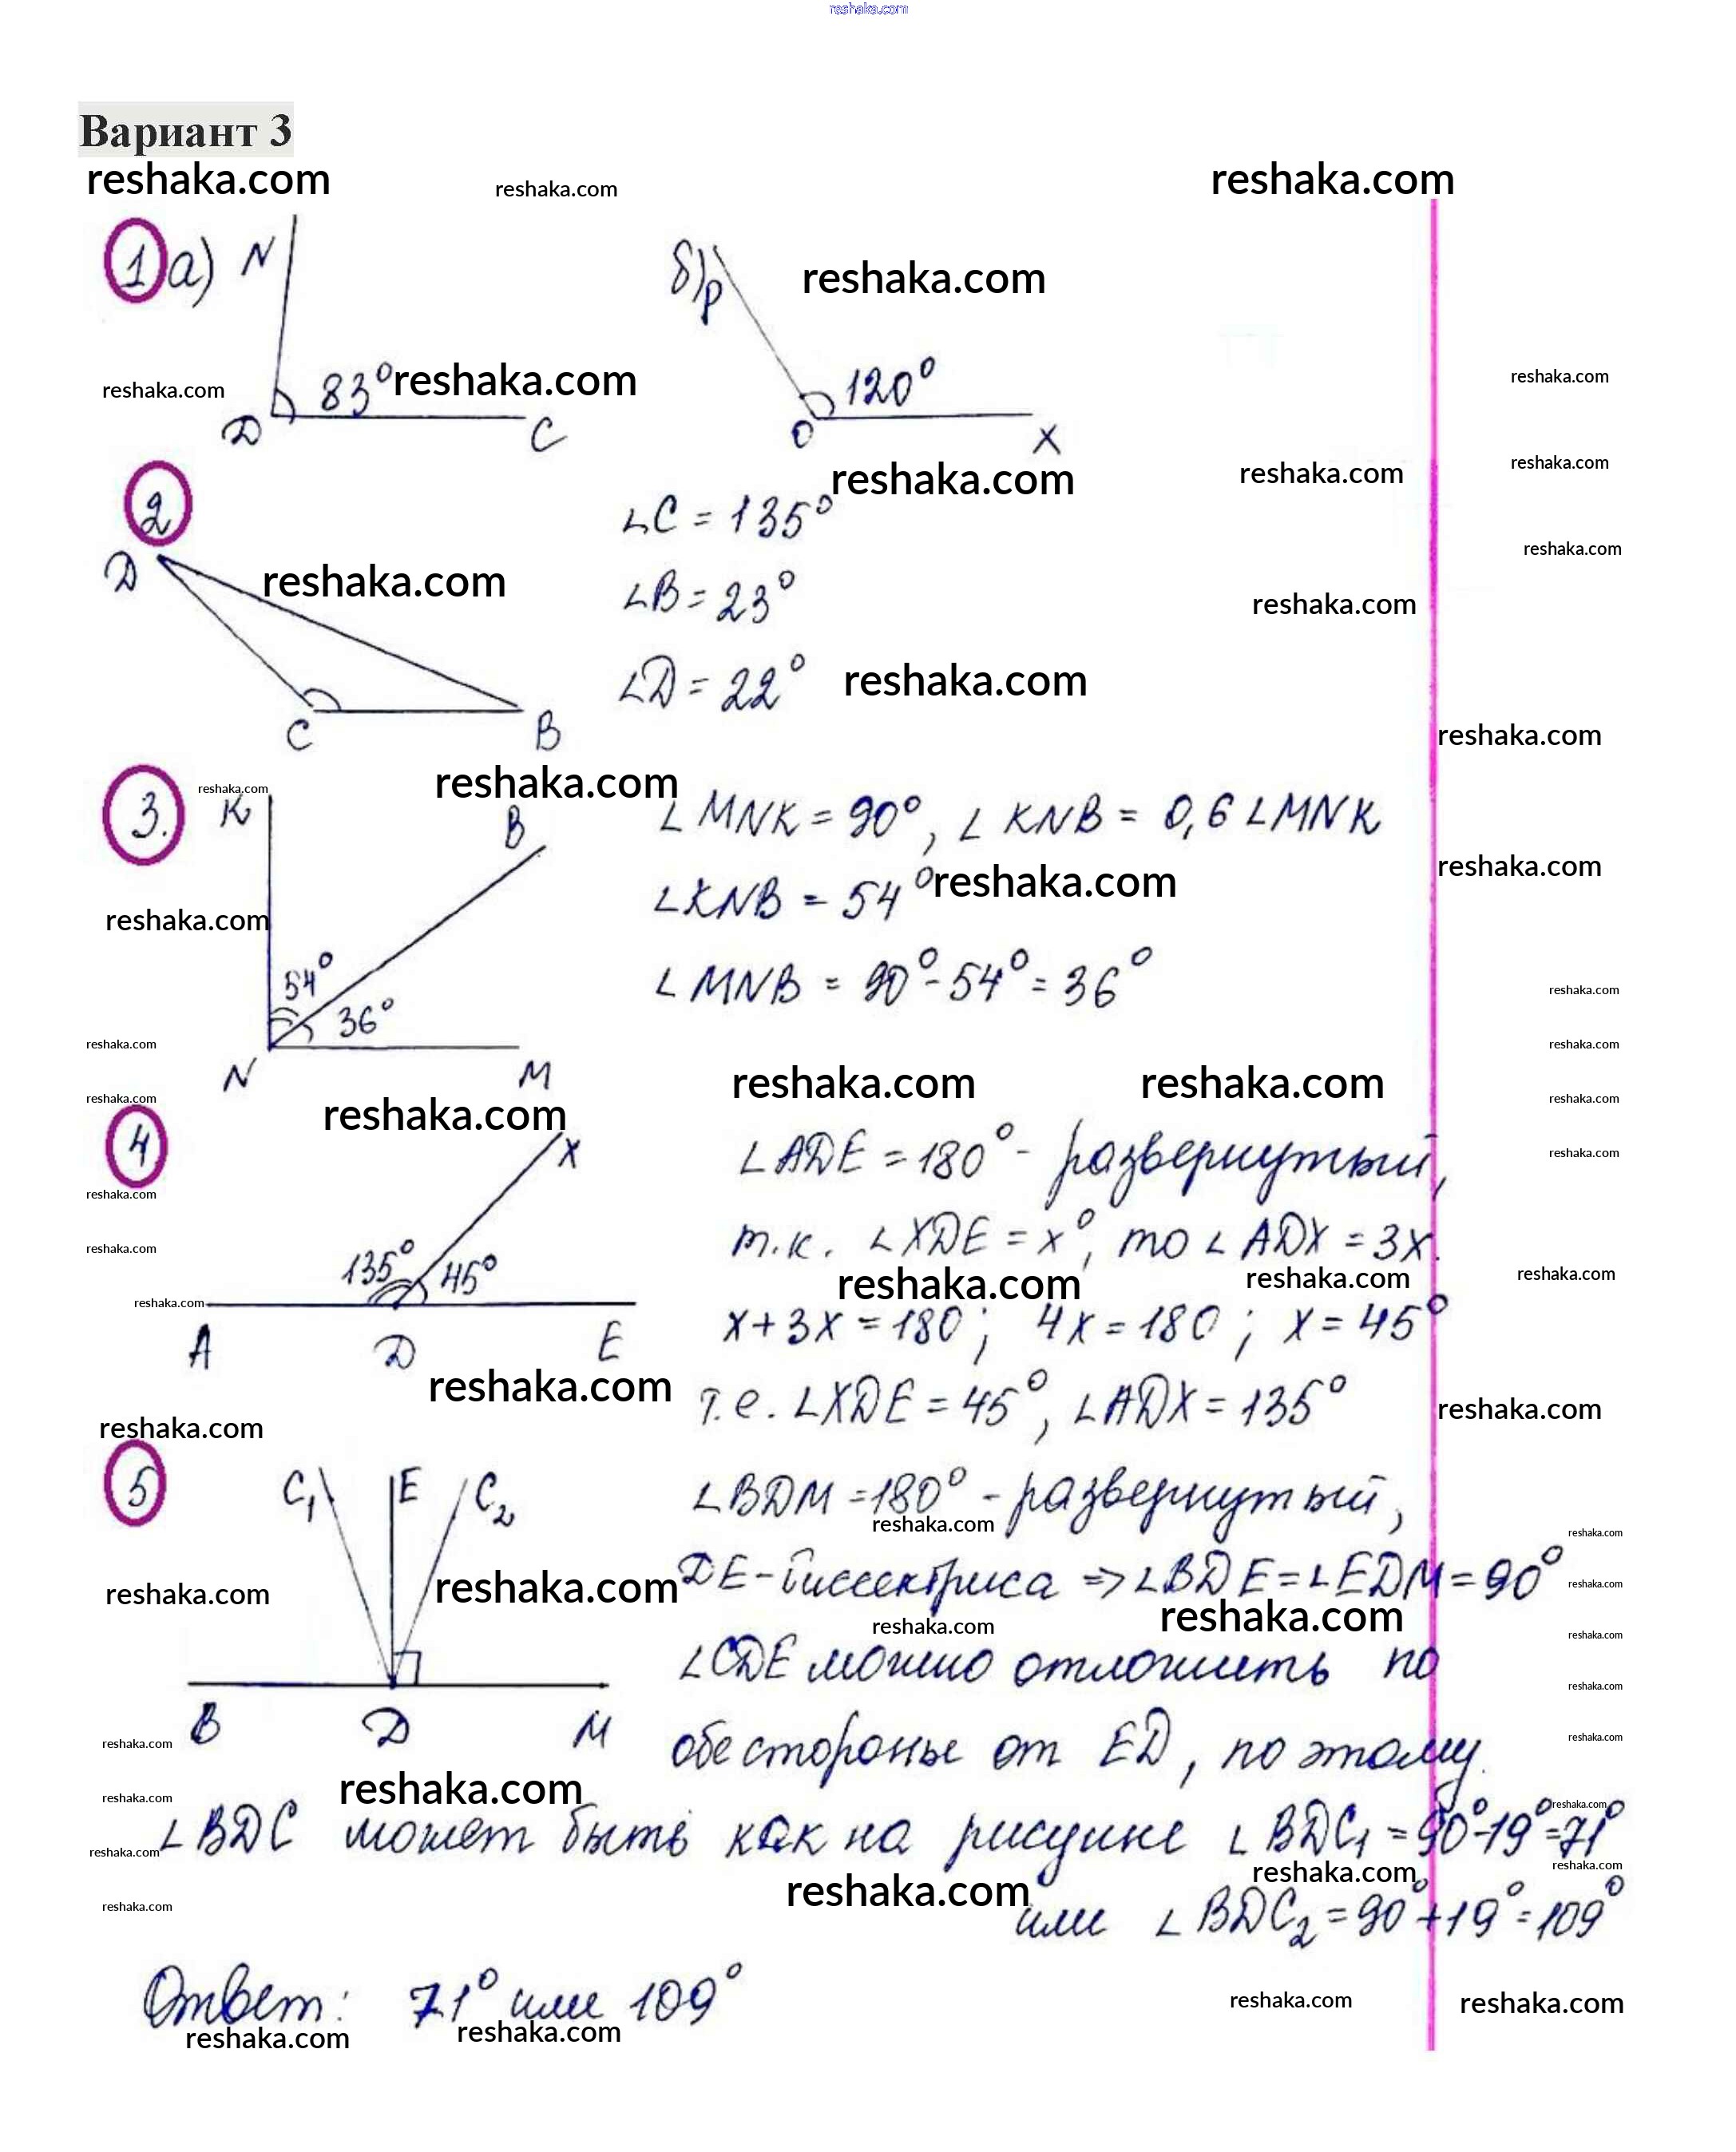 reshaka.com
Вариант 3
reshaka.com reshaka.com reshaka.com
1 а) N б) P reshaka.com
reshaka.com 83° reshaka.com 120° reshaka.com
D C O X
reshaka.com reshaka.com reshaka.com
2 ∠C = 135°
D reshaka.com reshaka.com
∠B = 23° reshaka.com
∠D = 22° reshaka.com
C B reshaka.com
3. K reshaka.com reshaka.com B ∠MNK = 90°, ∠KNB = 0,6 ∠MNK
reshaka.com ∠KNB = 54° reshaka.com reshaka.com
54° ∠MNB = 90° - 54° = 36° reshaka.com
36°
reshaka.com reshaka.com
N M reshaka.com reshaka.com
reshaka.com reshaka.com reshaka.com
4 X ∠ADE = 180° - развернутый, reshaka.com
reshaka.com
reshaka.com т.к. ∠XDE = x°, то ∠ADX = 3x.
135° 45° reshaka.com reshaka.com reshaka.com
reshaka.com
A D E x + 3x = 180; 4x = 180; x = 45°
reshaka.com т.е. ∠XDE = 45°, ∠ADX = 135° reshaka.com
reshaka.com
5 C₁ E C₂ ∠BDM = 180° - развернутый,
reshaka.com reshaka.com
reshaka.com reshaka.com DE - биссектриса => ∠BDE = ∠EDM = 90° reshaka.com
reshaka.com reshaka.com reshaka.com
∠CDE можно отложить по reshaka.com
B D M
reshaka.com обе стороны от ED, по этому reshaka.com
reshaka.com reshaka.com reshaka.com
∠BDC может быть как на рисунке ∠BDC₁ = 90° - 19° = 71°
reshaka.com reshaka.com reshaka.com
reshaka.com reshaka.com или ∠BDC₂ = 90° + 19° = 109°
Ответ: 71° или 109° reshaka.com reshaka.com
reshaka.com reshaka.com